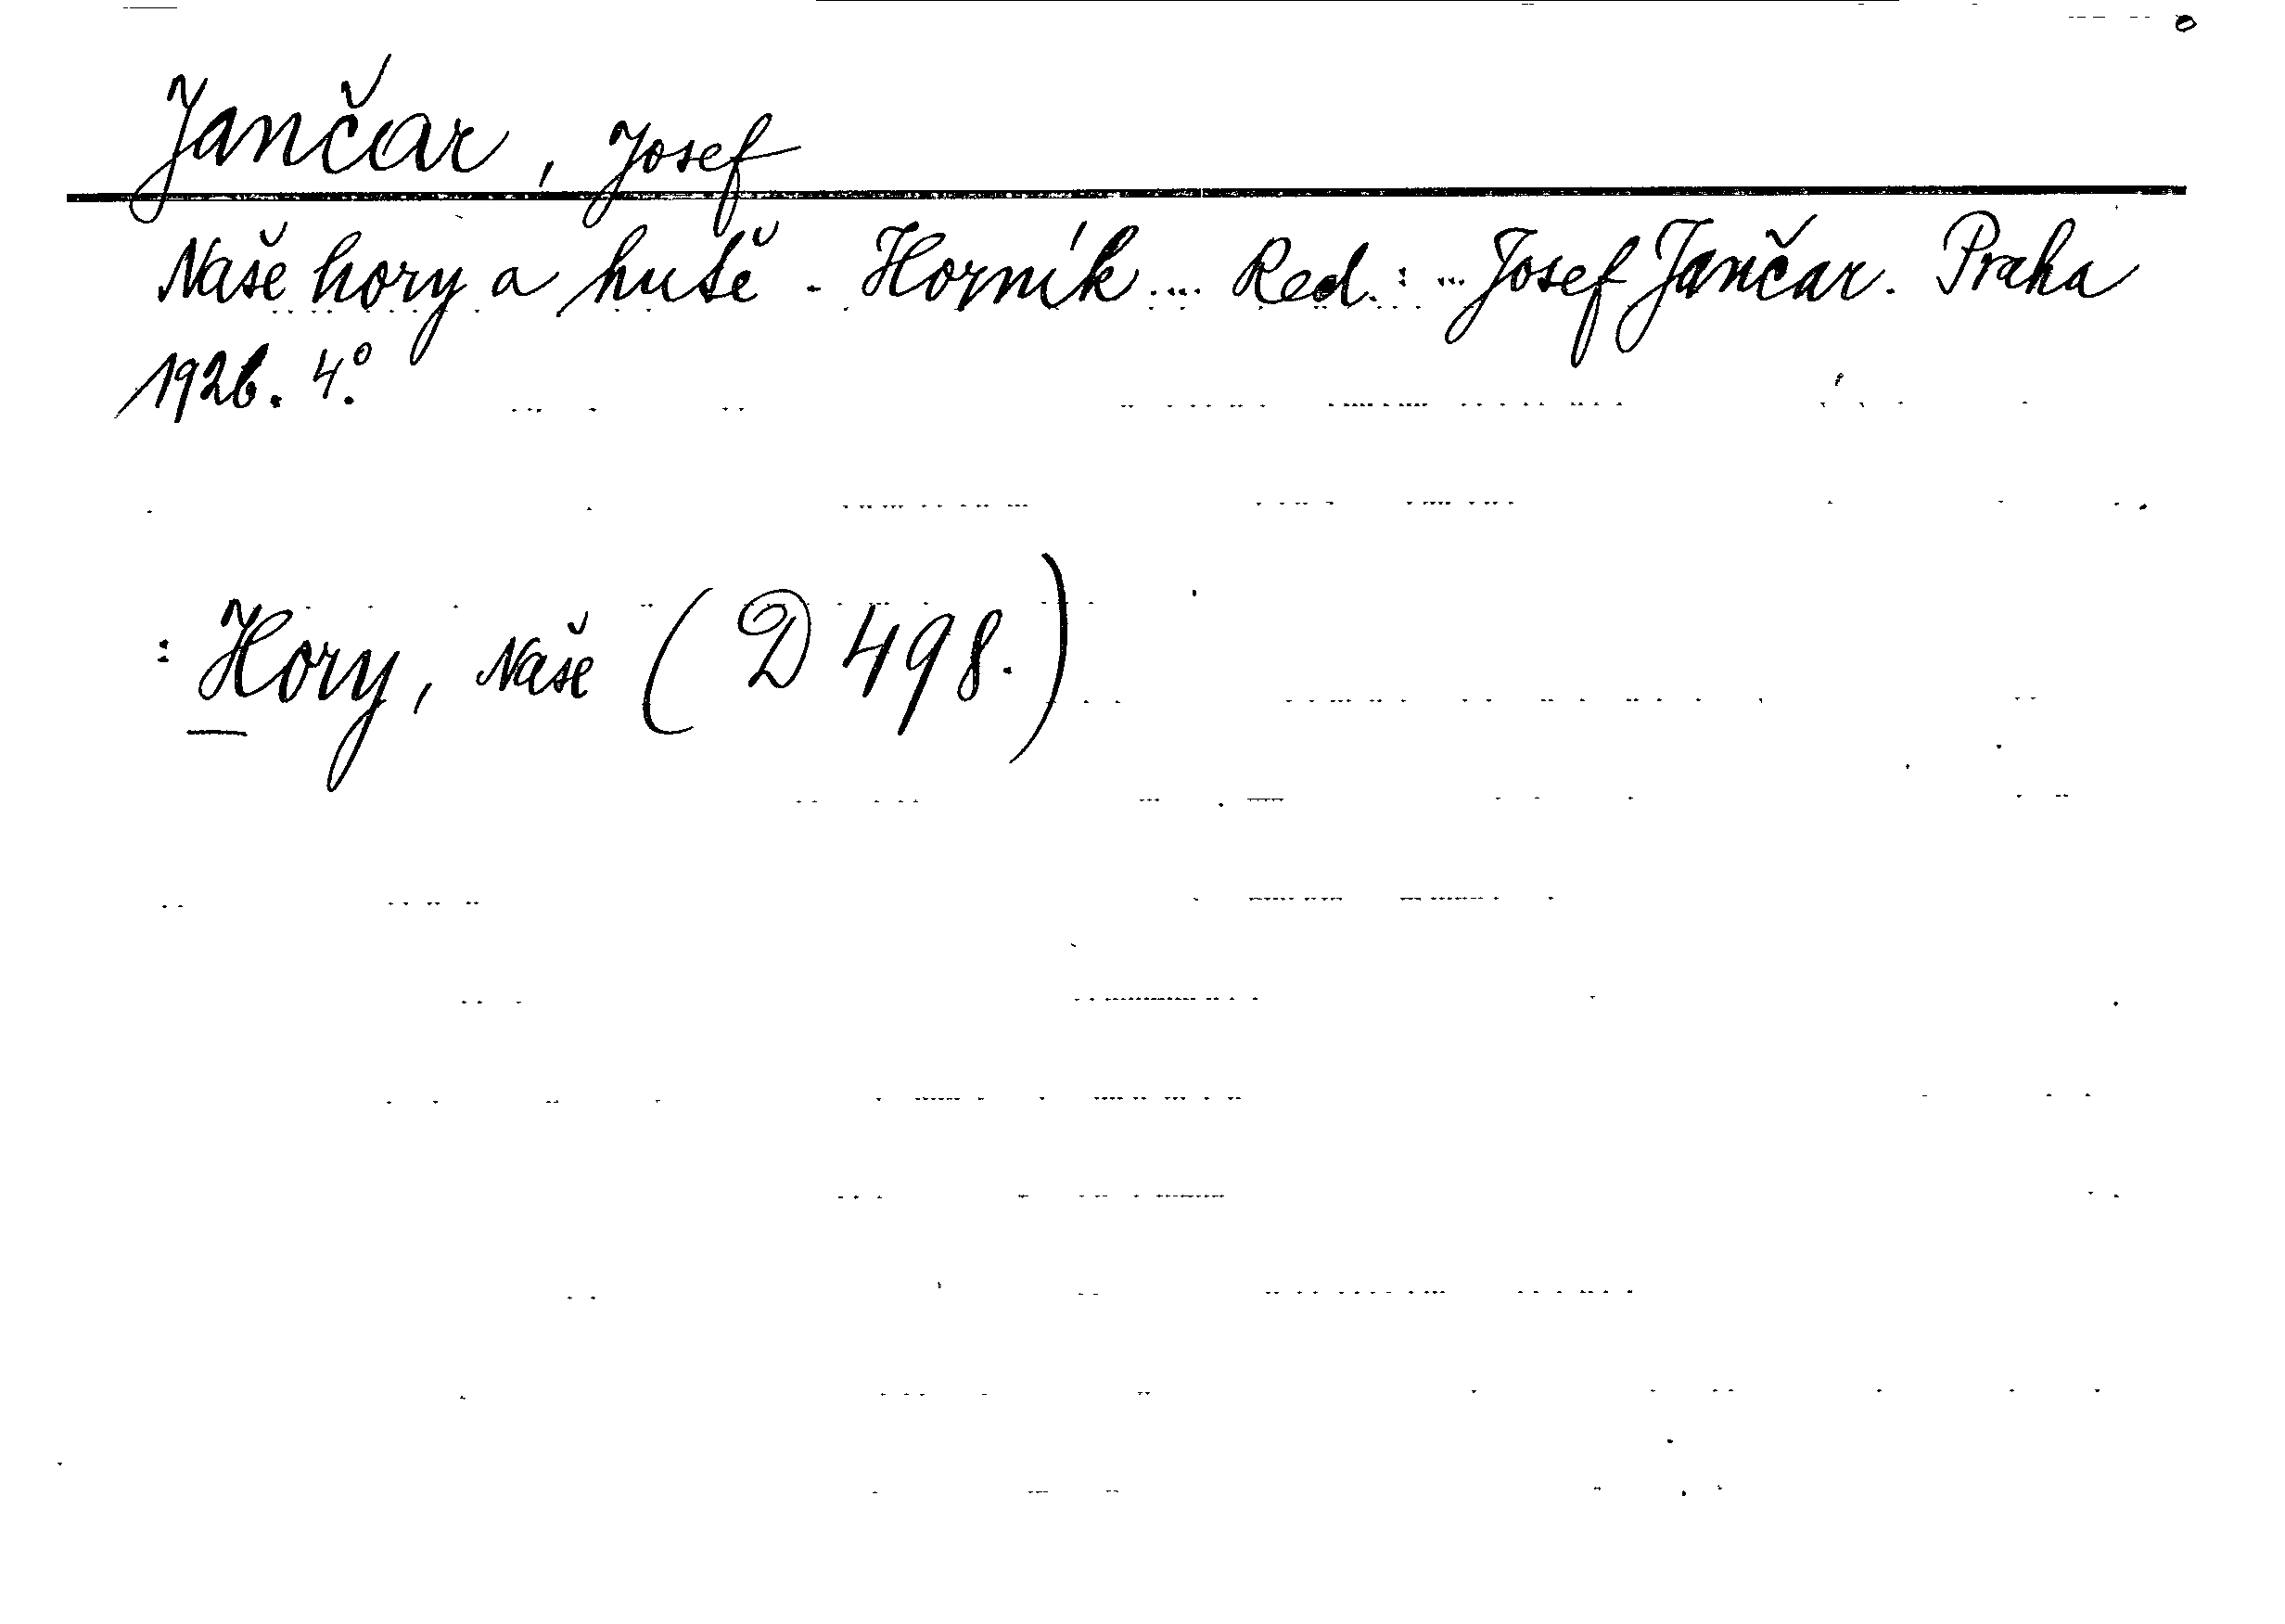 Jančar, Josef
Naše hory a hutě - Horník ... Red.: ... Josef Jančar. Praha
1926. 4°.
: Hory, Naše (D 498.)